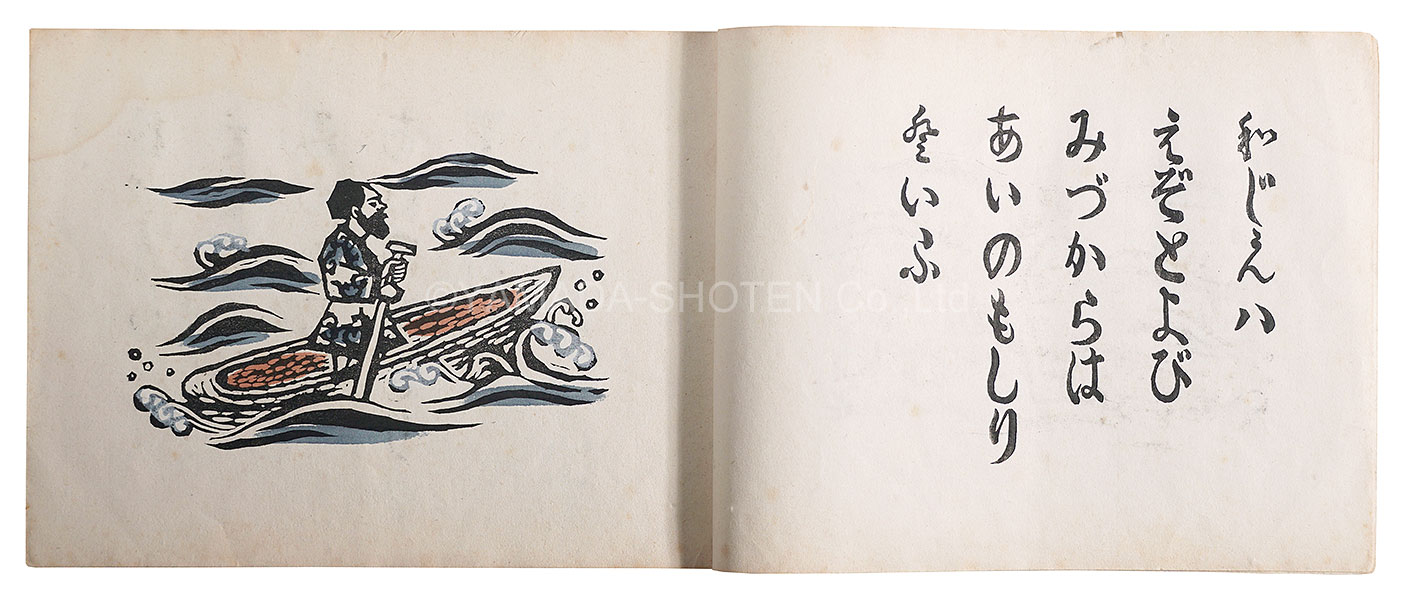 和じんハ
えぞとよび
みづからは
あいのもしり
登いふ
©YAMADA-SHOTEN Co.,Ltd.